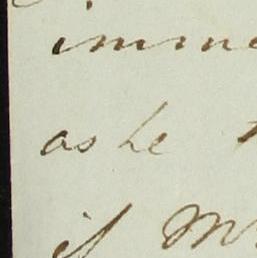 imme
as he
if Mr